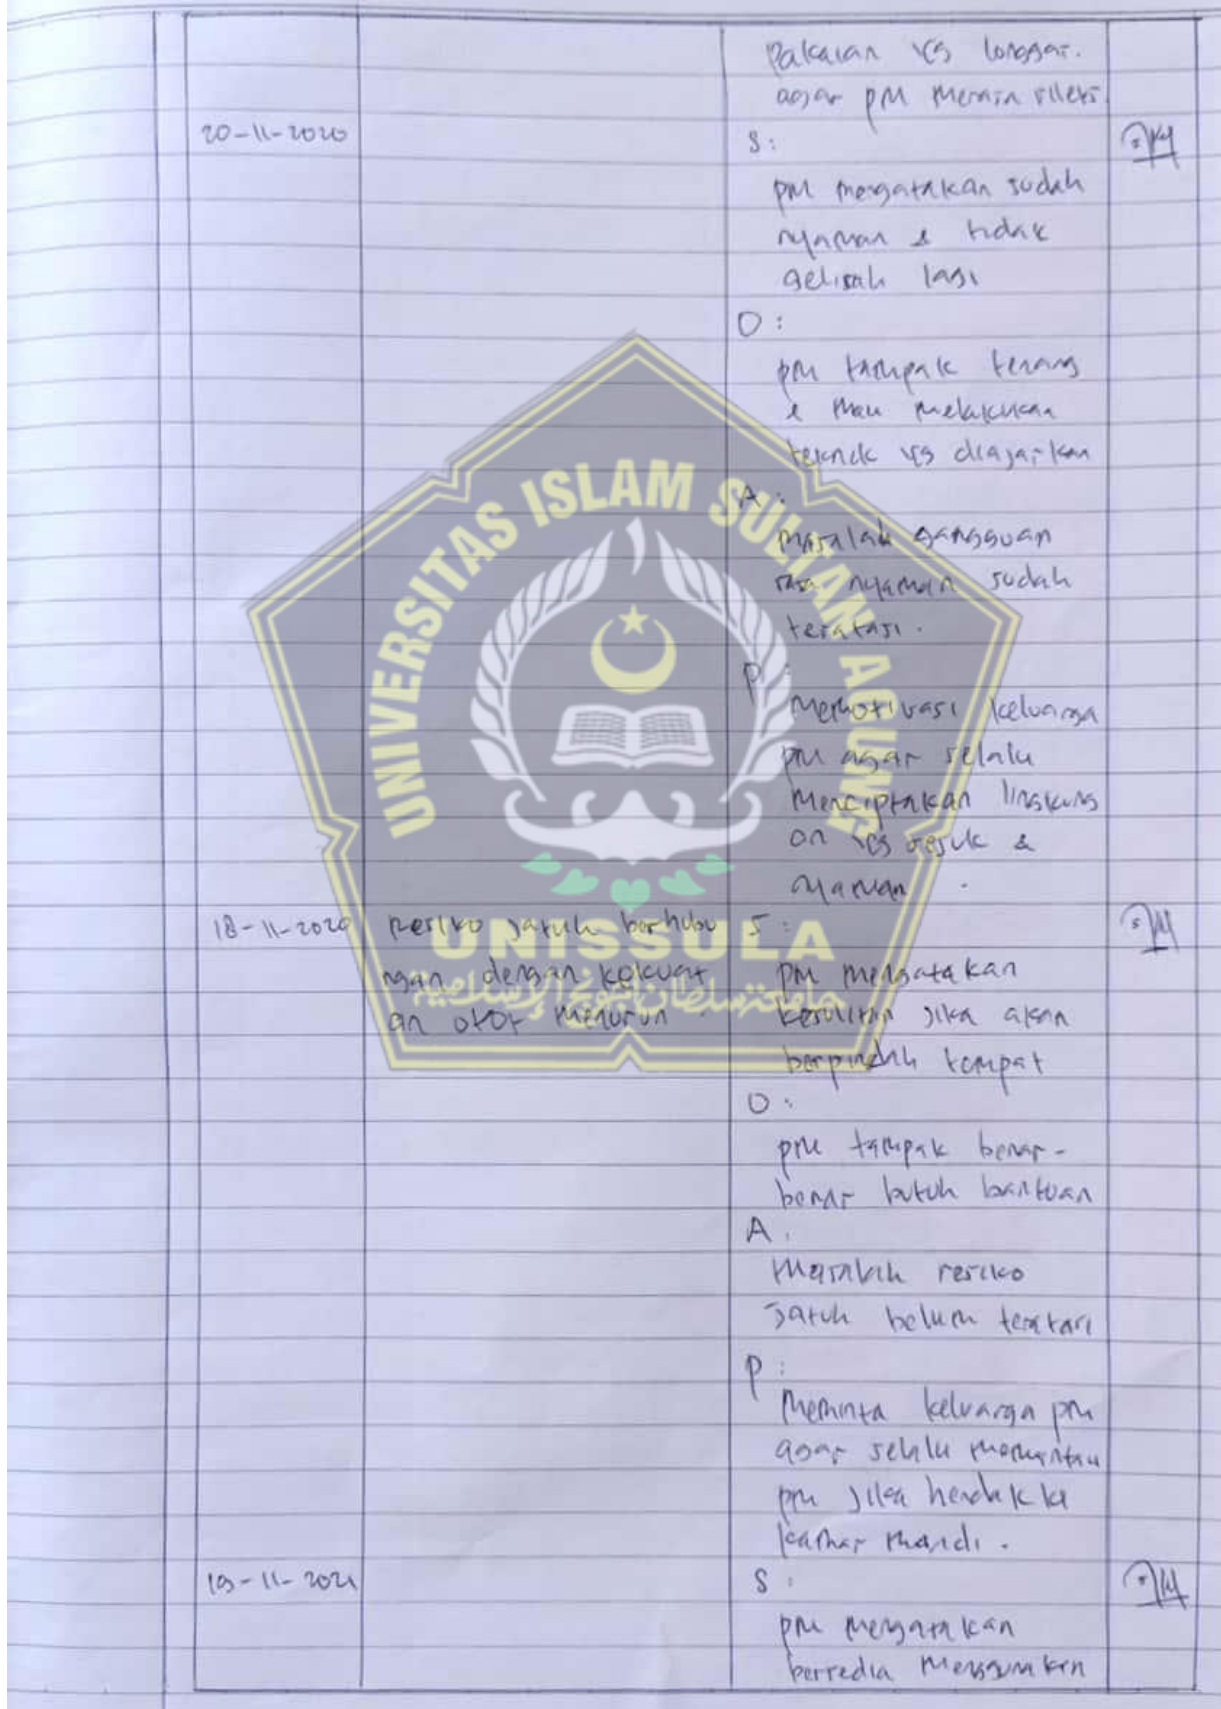 Pakaian yg longgar.
agar pm merasa rileks.
20-11-2020
S:
pm mengatakan sudah
nyaman & tidak
gelisah lagi
O:
pm tampak tenang
& mau melakukan
teknik yg diajarkan
A:
masalah gangguan
rasa nyaman sudah
teratasi.
P:
Memotivasi keluarga
pm agar selalu
menciptakan lingkung
an yg sejuk &
nyaman.
18-11-2020
Resiko jatuh berhubu
ngan dengan kekuat
an otot menurun.
S:
pm mengatakan
kesulitan jika akan
berpindah tempat
O:
pm tampak benar-
benar butuh bantuan
A.
Masalah resiko
jatuh belum teratasi
P:
Meminta keluarga pm
agar selalu memantau
pm jika hendak ke
kamar mandi.
19-11-202
S:
pm mengatakan
bersedia menggunakan
UNIVERSITAS ISLAM SULTAN AGUNG
UNISSULA
جامعة سلطان أجونج الإسلامية